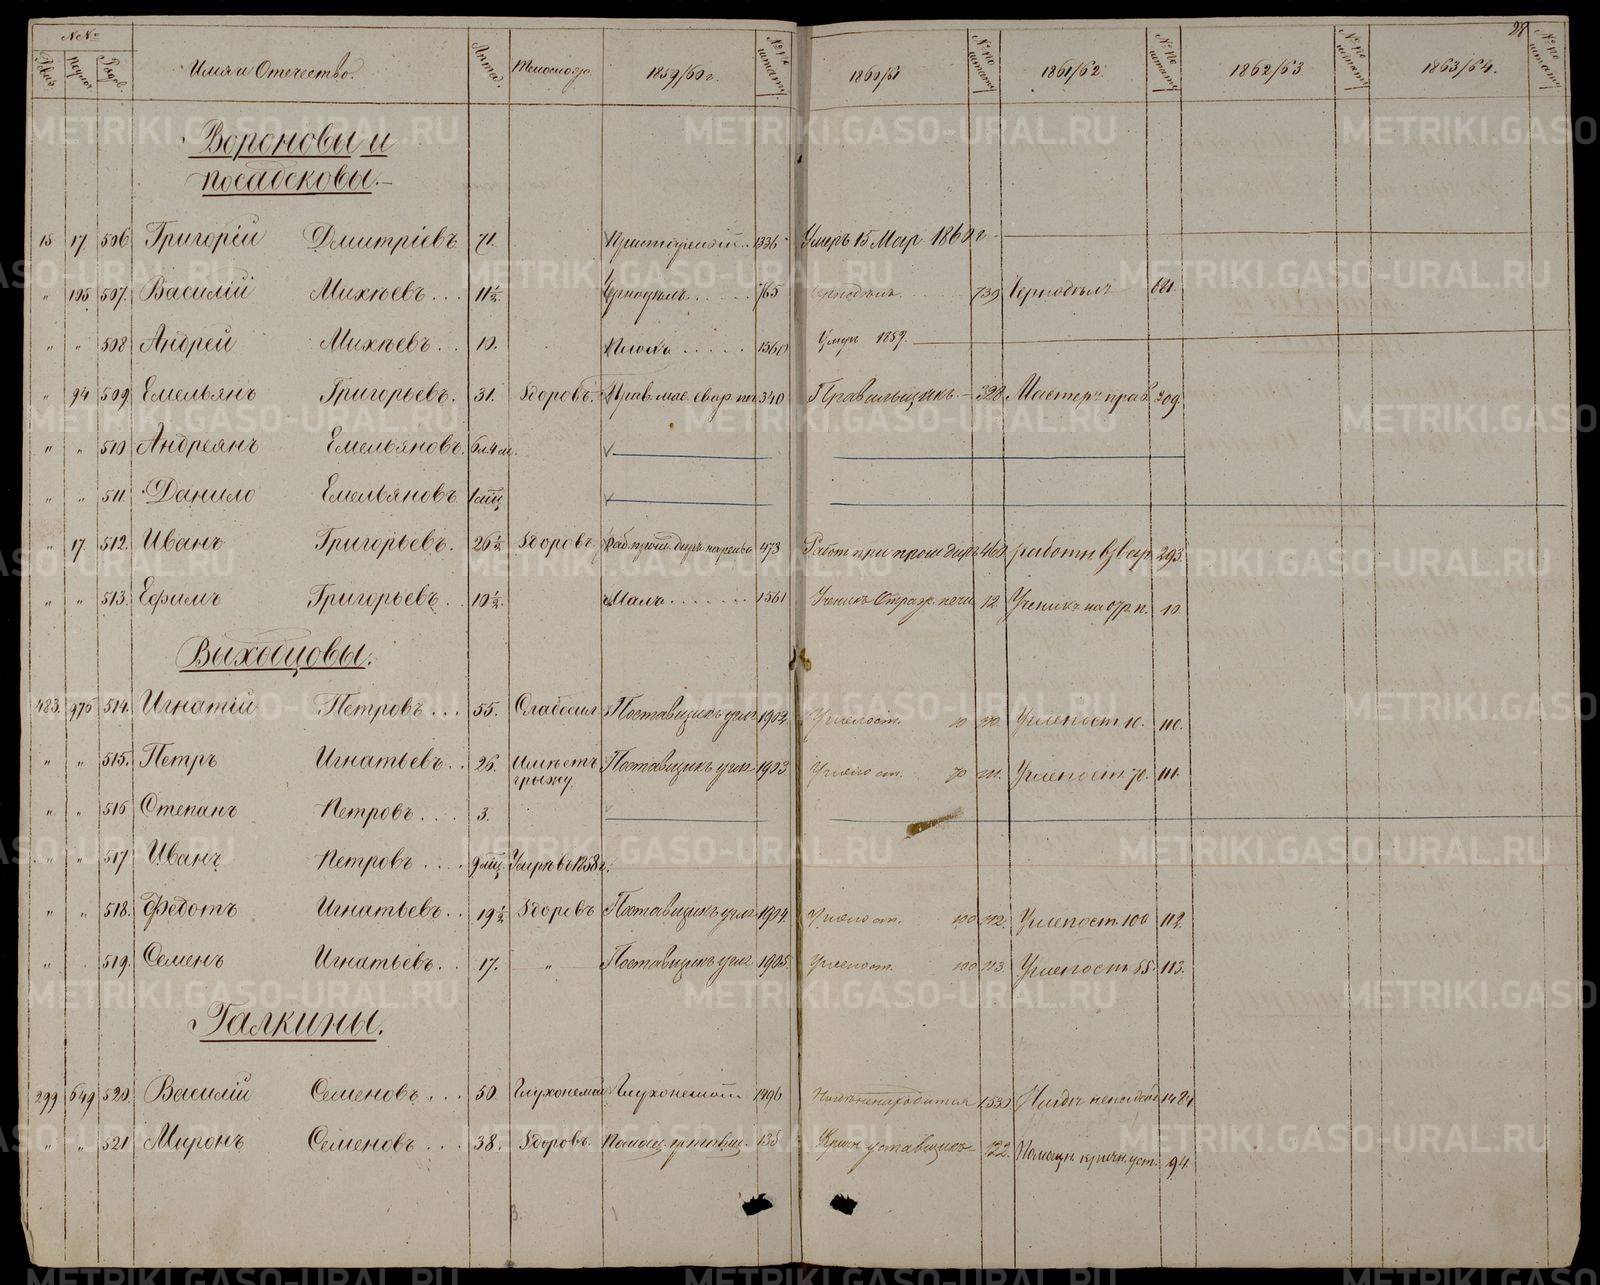 28
№№
Ревиз. Подвор. Рядов. Имя и Отчество. Лѣта. Тѣлослож. 1859/60 г. №№ по штату 1860/61 №№ по штату 1861/62. №№ по штату 1862/63 №№ по штату 1863/64. №№ по штату
Вороновы и
Посадсковы.
15 17 506 Григорій Дмитріевъ 71. 1336 Умеръ 15 Мар 1860 г
„ 195 507. Василій Михѣевъ... 11½ 765 739 681.
„ „ 508 Андрей Михѣевъ.. 10. 1560 Умеръ 1859.
„ 94 509 Емельянъ Григорьевъ. 31. Здоровъ. Прав. мас. свар. печ 340 Правильщикъ 328 Мастеръ прав. 209.
„ „ 510 Андреянъ Емельяновъ. 6л.4м.
„ „ 511. Данило Емельяновъ
„ 17. 512. Иванъ Григорьевъ. 26½. Здоровъ 473 Работ при прош 460. работн 293.
„ „ 513. Ефимъ Григорьевъ.. 10½. Малъ....... 1561 Ученикъ Отраж. печи 12. Ученикъ на отр. п. 10.
Выходцовы.
483. 976 514. Игнатій Петровъ... 55. Слабосил Поставщикъ угля 1902. Углепост. 10 110. Углепост. 10. 110.
„ „ 515. Петръ Игнатьевъ.. 26. Имѣетъ грыжу. Поставщикъ угля 1903 Углепост. 70 111. Углепост 70. 111.
„ „ 516 Степанъ Петровъ.... 3.
„ „ 517 Иванъ Петровъ.... 9 мц. Умеръ въ 1858 г.
„ „ 518. Федотъ Игнатьевъ.. 19½ Здоровъ Поставщикъ угля 1904 Углепост. 100 112. Углепост. 100 112.
„ 519. Семенъ Игнатьевъ.. 17. „ Поставщикъ угля 1905. Углепост. 100 113. Углепост 85. 113.
Галкины.
299 649 520. Василій Семеновъ... 50. Глухонемый Глухонемой 1496 1530 Нигдѣ 1484
„ „ 521. Миронъ Семеновъ... 38. Здоровъ. Помощ. уставщ. 135 Кричн. уставщикъ 122. Помощн. кричн. уст. 94.
METRIKI.GASO-URAL.RU